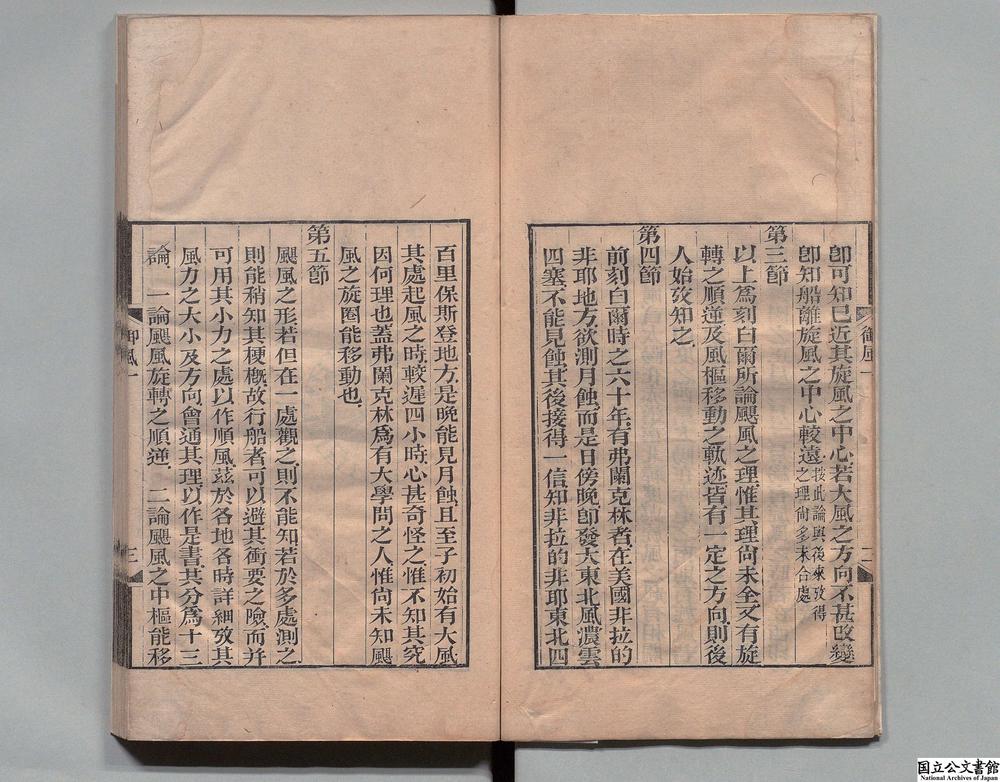 即可知已近其旋風之中心若大風之方向不甚改變
即知船離旋風之中心較遠按此論與後來攷得
之理尙多未合處
第三節
以上爲刻白爾所論颶風之理惟其理尙未全又有旋
轉之順逆及風樞移動之軌迹皆有一定之方向則後
人始攷知之
第四節
前刻白爾時之六十年有弗蘭克林者在美國非拉的
非耶地方欲測月蝕而是日傍晚卽發大東北風濃雲
四塞不能見蝕其後接得一信知非拉的非耶東北四
御風一
二
百里保斯登地方是晚能見月蝕且至子初始有大風
其處起風之時較遲四小時心甚奇怪之惟不知其究
因何理也蓋弗蘭克林爲有大學問之人惟尙未知颶
風之旋圈能移動也
第五節
颶風之形若但在一處觀之則不能知若於多處測之
則能稍知其梗槪故行船者可以避其衝要之險而并
可用其小力之處以作順風茲於各地各時詳細攷其
風力之大小及方向會通其理以作是書其分爲十三
論、一論颶風旋轉之順逆、二論颶風之中樞能移
御風一
三
国立公文書館
National Archives of Japan